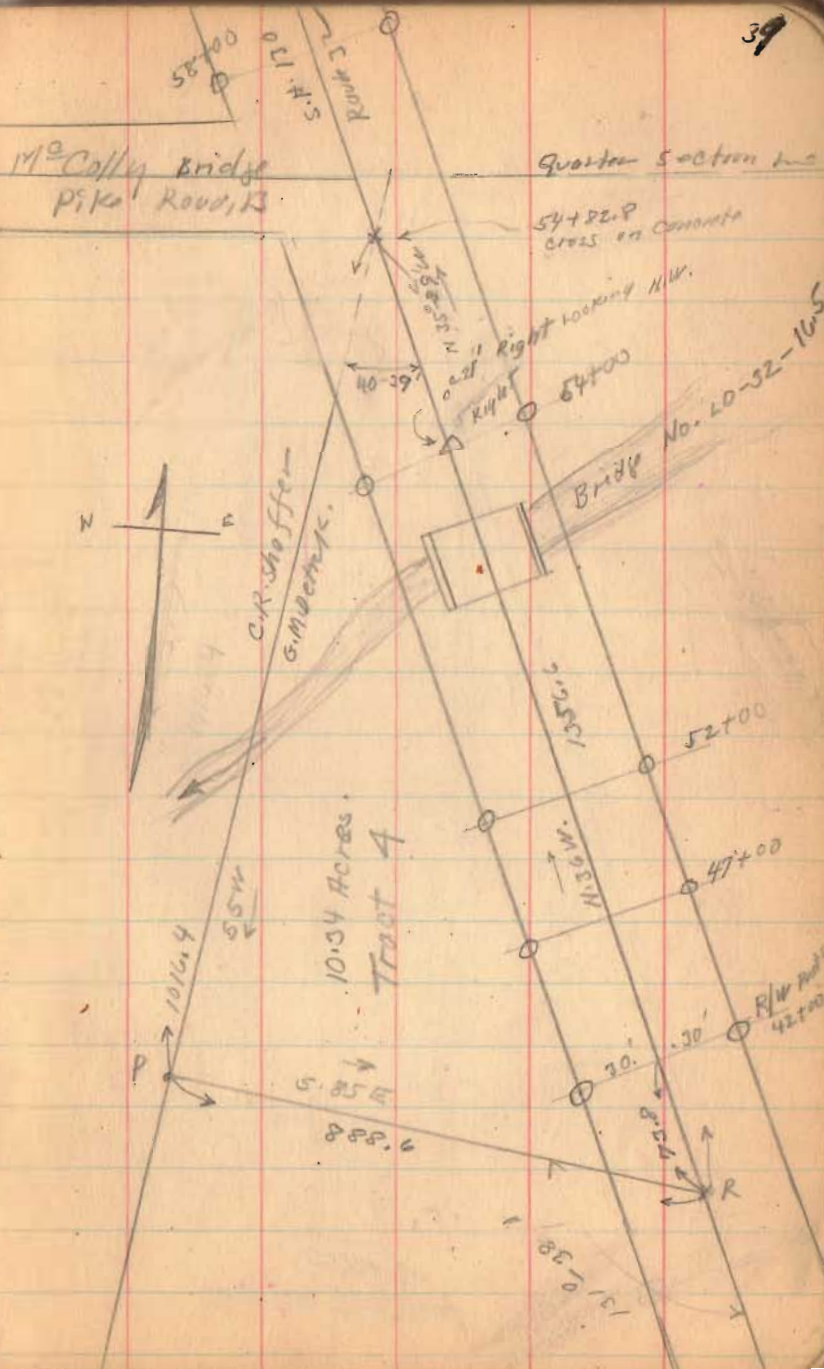 39
58+00
S.H. 130
Route 32
McColly Bridge
Pike Road, B
Quarter Section Line
54+82.8
cross on concrete
N 35° 39' W
40-39
0°21' Right Looking N.W.
Right
54+00
Bridge No. LO-32-16.5
N E
C.R. Shaffer
G.M. Dettyk.
1356.6
52+00
10.34 Acres.
Tract 4
N.36 W.
47+00
S 5 W
1016.4
P
R/W
42+00
30' 30'
S. 85 E
888.6
75.8
R
131° 38'